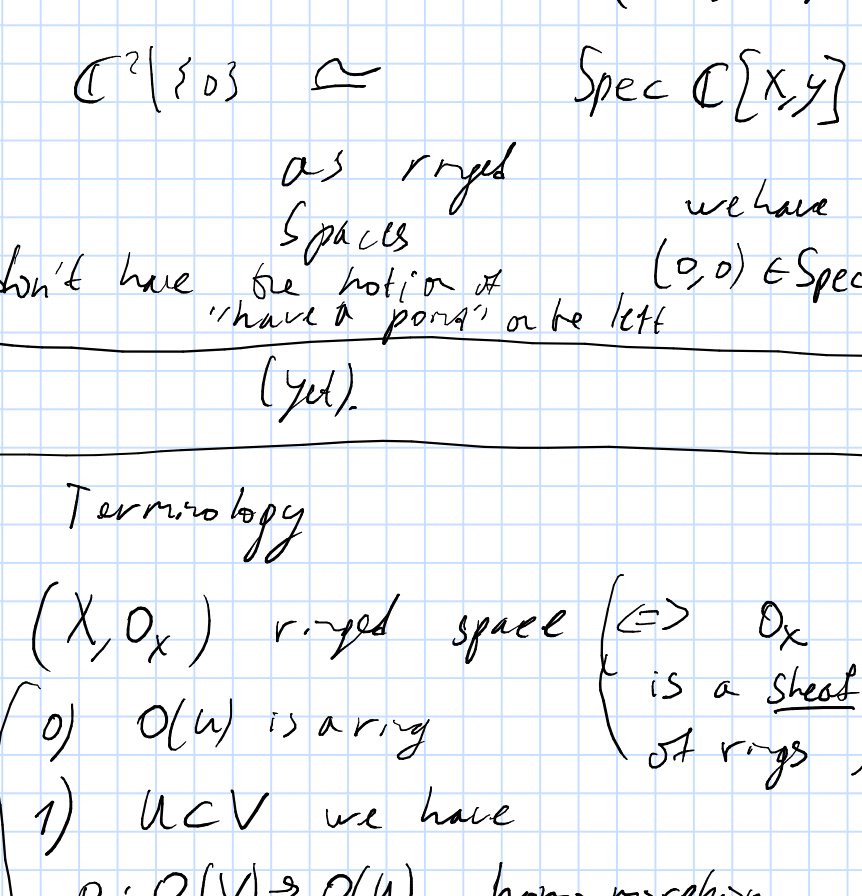 ℂ²\{0} ≃ Spec ℂ[X,y]
as ringed
Spaces
we have
(0,0) ∈ Spec
don't have the notion of
"have a point" or be left
(yet).
Terminology
(X, O_X) ringed space (<=> O_X
is a sheaf
of rings
0) O(U) is a ring
1) U⊂V we have
ρ: O(V) → O(U) homomorphism